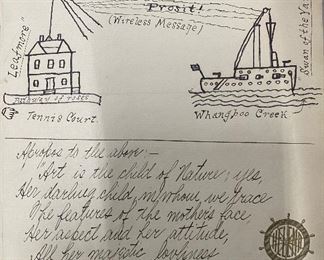 Prosit!
(Wireless Message)
"Leafmore"
pathway of roses
Tennis Court.
Swan of the Ya
Whangboo Creek.
Apropos to the above:—
"Art is the child of Nature; yes,
Her darling child, in whom we trace
The features of the mother's face,
Her aspect and her attitude,
All her majestic loveliness